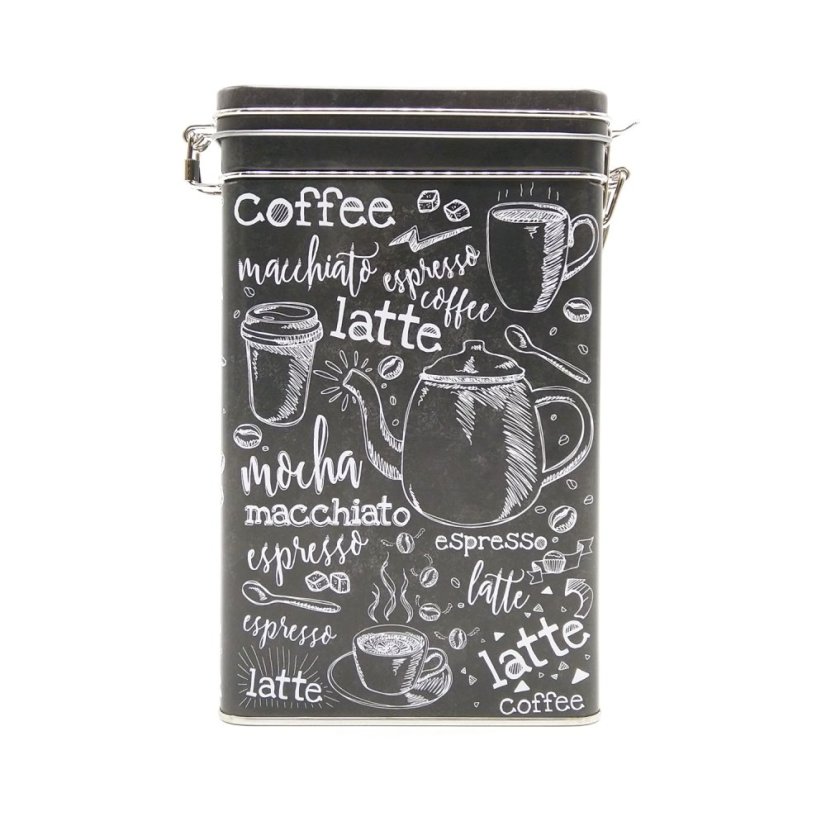 coffee
macchiato espresso
coffee
latte
mocha
macchiato
espresso
espresso
latte
espresso
latte
latte
coffee